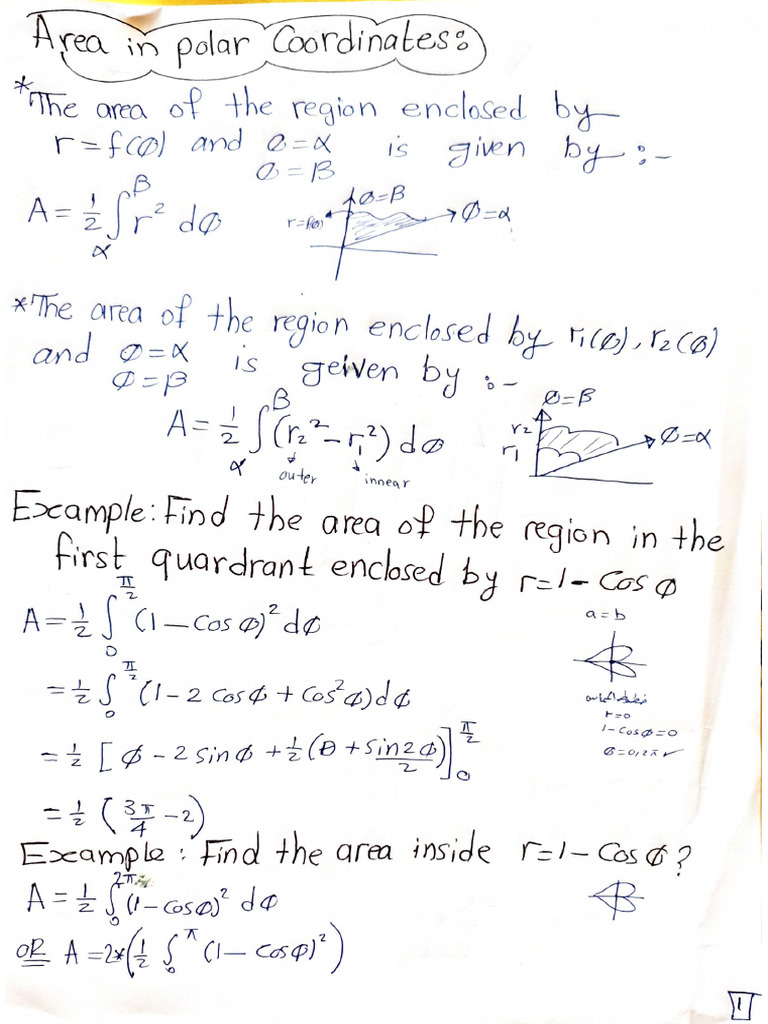 Area in polar Coordinates:
*The area of the region enclosed by
r = f(Ø) and Ø = α is given by :-
Ø = β
A = 1/2 ∫_α^β r² dØ
Ø = β
r = f(Ø)
Ø = α
*The area of the region enclosed by r1(Ø), r2(Ø)
and Ø = α is geiven by :-
Ø = β
A = 1/2 ∫_α^β (r2² - r1²) dØ
outer innear
Ø = β
r2
r1
Ø = α
Example: Find the area of the region in the
first quardrant enclosed by r = 1 - Cos Ø
A = 1/2 ∫_0^{π/2} (1 - Cos Ø)² dØ
a = b
= 1/2 ∫_0^{π/2} (1 - 2 Cos Ø + Cos² Ø) dØ
r = 0
1 - Cos Ø = 0
Ø = 0, 2π ✓
= 1/2 [Ø - 2 Sin Ø + 1/2 (Ø + Sin 2Ø/2)]_0^{π/2}
= 1/2 (3π/4 - 2)
Example: Find the area inside r = 1 - Cos Ø?
A = 1/2 ∫_0^{2π} (1 - Cos Ø)² dØ
OR A = 2*(1/2 ∫_0^π (1 - Cos Ø)²)
1